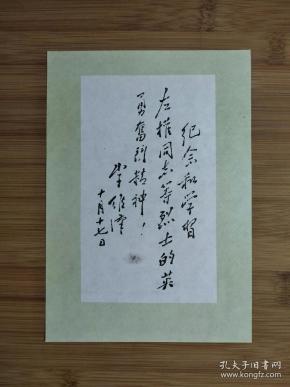 纪念和学习
左权同志等烈士的英
勇奋烈精神！
李维汉
十月十七日
孔夫子旧书网
www.kongfz.com